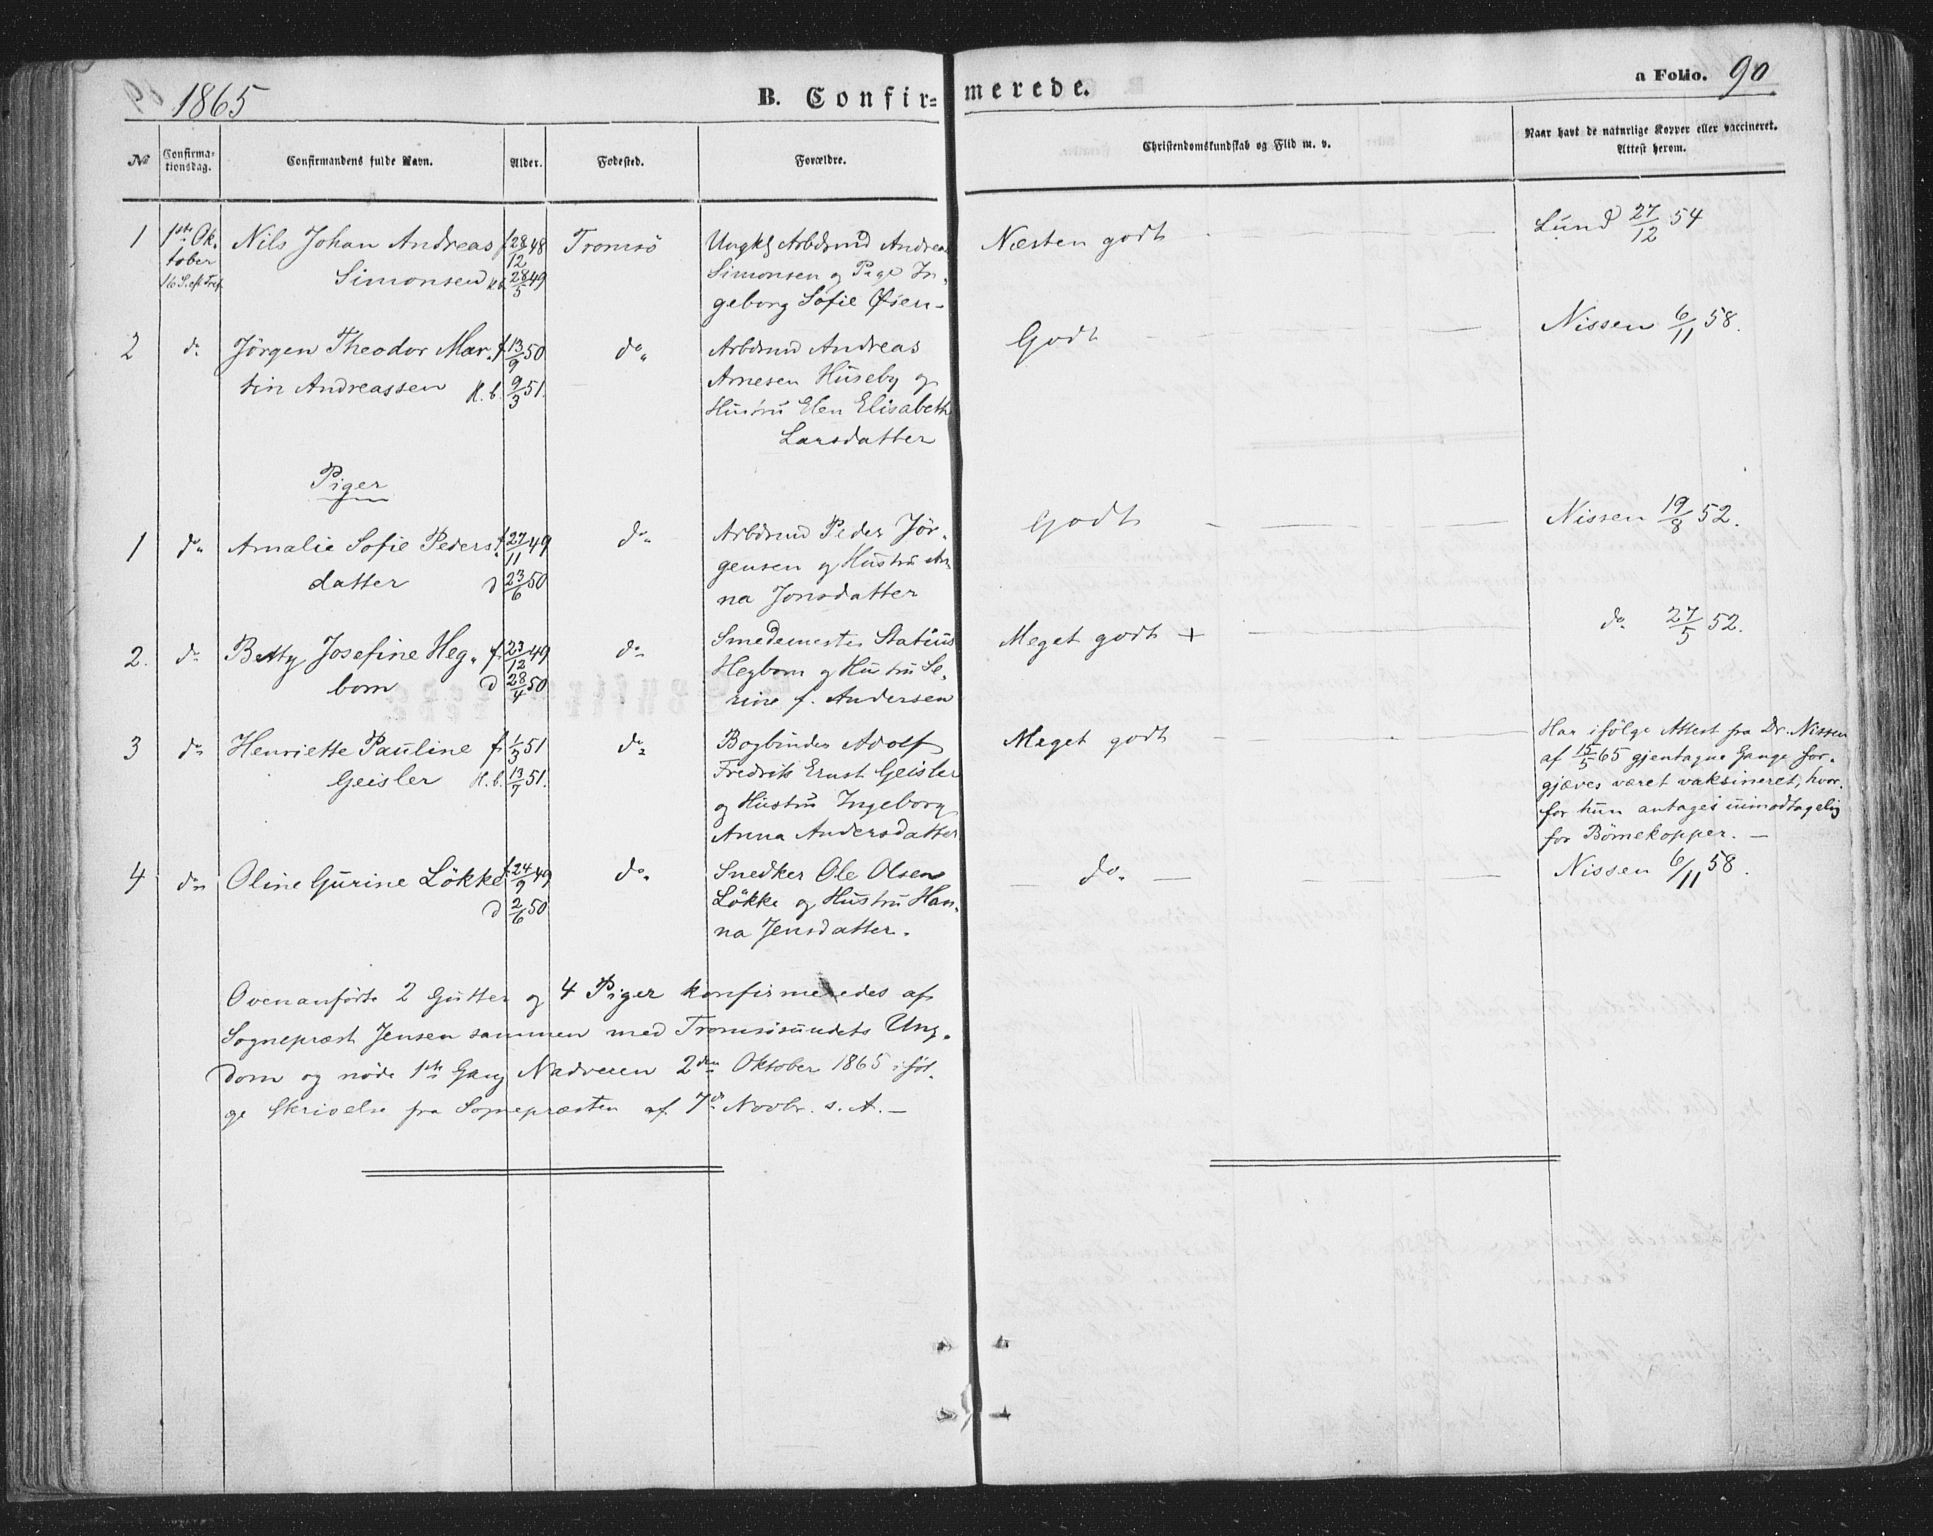 1865
B. Confir= merede.
a Folio. 90
No
Confirma-
tionsdag.
Confirmandens fulde Navn.
Alder.
Fødested.
Forældre.
Christendomskundskab og Flid m. v.
Naar havt de naturlige Kopper eller vaccineret.
Attest herom.
1 1ste Ok- Nils Johan Andreas f. 28/12 48 Tromsö Ungkl Arbdsmd Andreas Næsten godt Lund 27/12 54
tober Simonsen H.b. 28/5 49 Simonsen og Pige In-
16 S. eft Tref. geborg Sofie Øsen-
2 do Jörgen Theodor Mar- f. 13/9 50 do Arbdsmd Andreas Godt Nissen 6/11 58.
tin Andreassen H.b. 9/3 51. Arnesen Huseby og
Hustru Elen Elisabeth
Larsdatter
Piger
1 do Amalie Sofie Peders- f. 27/11 49 do Arbdsmd Peder Jör- Godt Nissen 19/8 52.
datter d 23/6 50 gensen og Hustru An-
na Jonsdatter
2. do Betty Josefine Heg- f. 23/12 49 do Smedemester Statius Meget godt + do 27/5 52.
bom d 28/4 50 Hegbom og Hustru Se-
rine f. Andersen
3 do Henriette Pauline f. 1/3 51 do Bogbinder Adolf Meget godt Har ifölge Attest fra Dr. Nissen
Geisler H.b. 13/7 51. Fredrik Ernst Geisler af 15/5 65 gjentagne Gange for-
og Hustru Ingeborg gjæves været vaksineret, hvor-
Anna Andersdatter for hun antages uimodtagelig
for Börnekopper. —
4 do Oline Gurine Lökke f. 24/9 49 do Snedker Ole Olsen — do — Nissen 6/11 58.
d 2/6 50 Lökke og Hustru Han-
na Jensdatter.
Ovenanförte 2 Gutter og 4 Piger konfirmeredes af
Sognepræst Jensen sammen med Tromsösundets Ung-
dom og nöde 1ste Gang Nadveren 2den Oktober 1865 iföl-
ge Skrivelse fra Sognepræsten af 7d Novbr. s. A. —